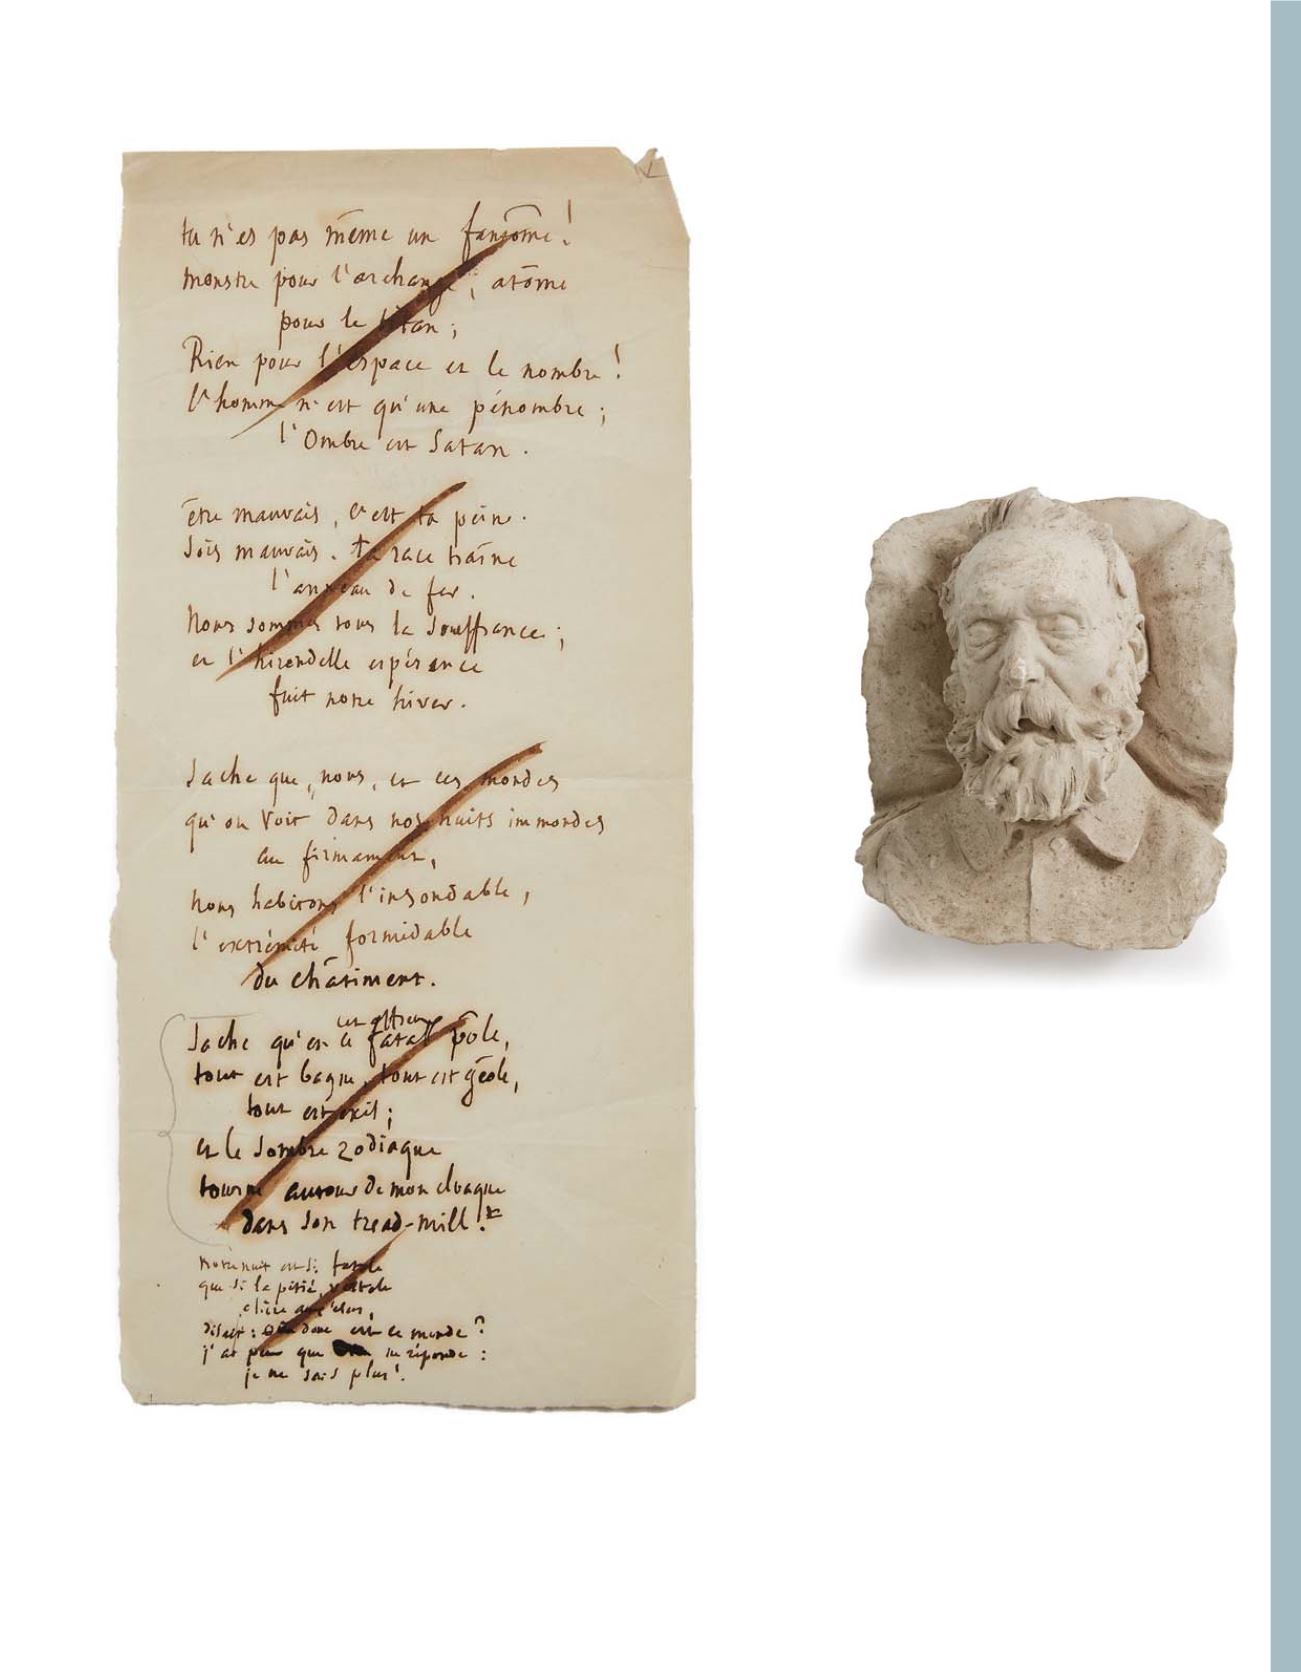 tu n'es pas même un fantôme !
monstre pour l'archange ; atôme
pour le titan ;
Rien pour l'espace et le nombre !
l'homme n'est qu'une pénombre ;
l'Ombre est Satan.
être mauvais, c'est ta peine.
Sois mauvais. ta race traîne
l'anneau de fer.
Nous sommes tous la souffrance ;
et l'hirondelle espérance
fuit notre hiver.
Sache que, nous, et ces mondes
qu'on voit dans nos nuits immondes
au firmament,
nous habitons l'insondable,
l'extrémité formidable
du châtiment.
cet affreux
Sache qu'en ce fatal pôle,
tout est bagne, tout est geôle,
tout est exil ;
et le sombre zodiaque
tourne autour de mon cloaque
dans son tread-mill.
notre nuit est si fatale
que si la pitié, vestale
chère aux élus,
disait : donc est ce monde ?
j'ai peur que ne réponde :
je ne sais plus !